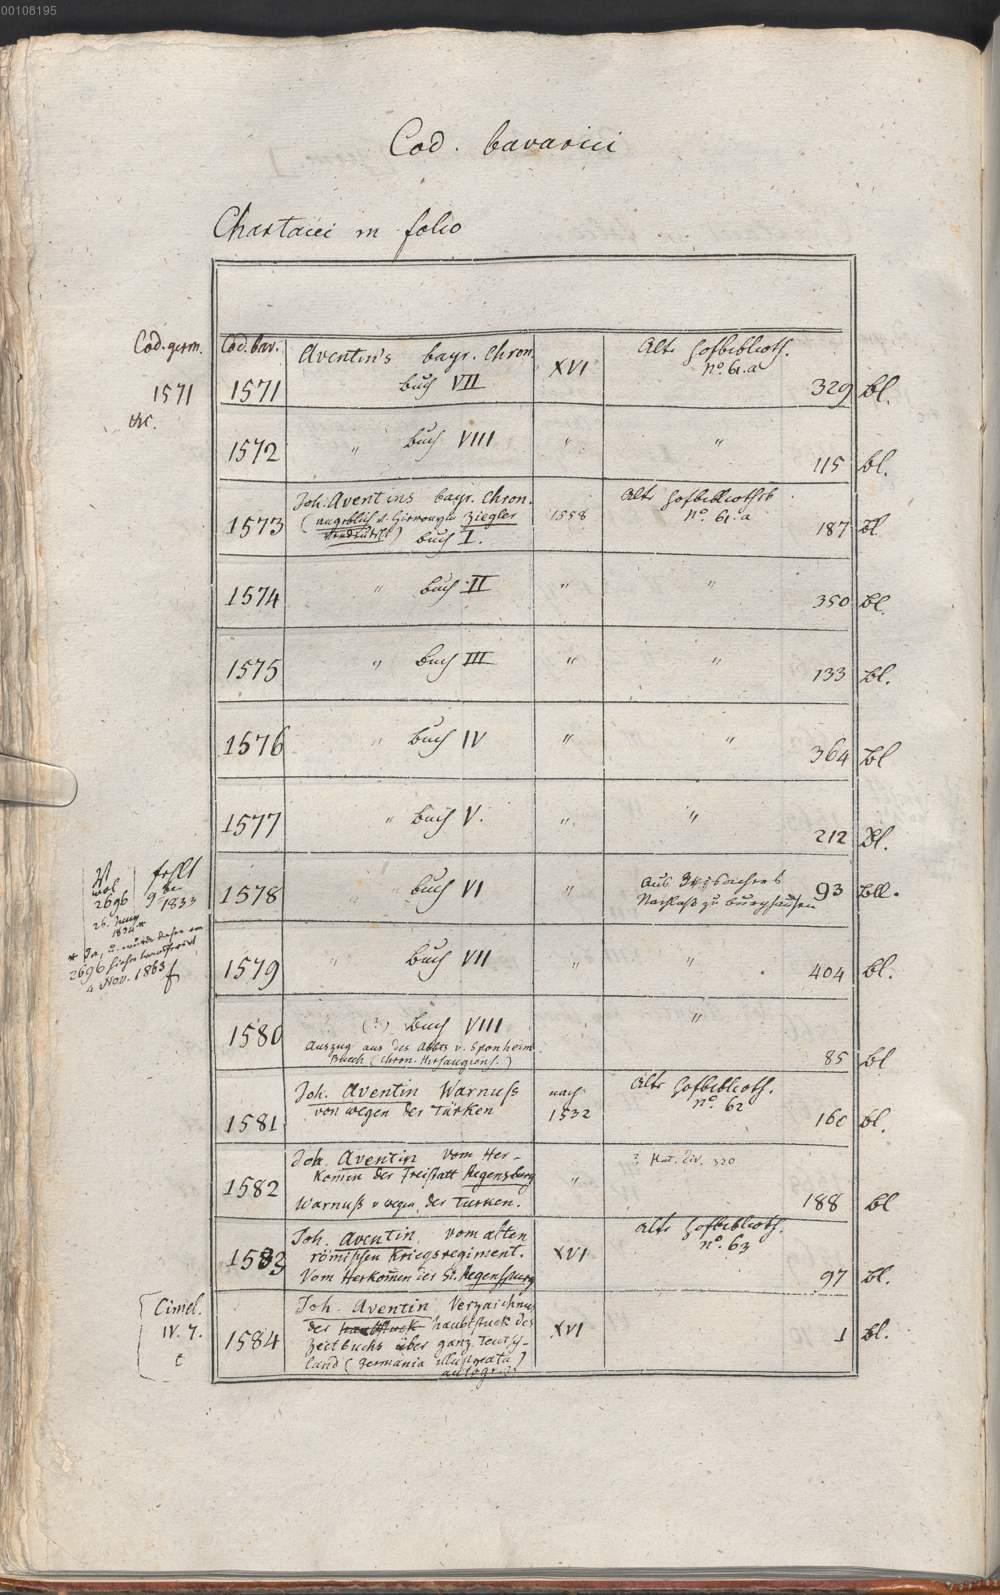 00108195
Cod. bavarici
Chartacei in folio
Cod. germ.
1571
etc.
Cod. bav.
1571
Aventin's bayr. Chron.
Buch VII
XVI
Alte Hofbiblioth.
no. 61.a
329 Bl.
1572
" Buch VIII
"
"
115 bl.
1573
Joh. Aventins bayr. Chron.
(angeblich v. Hieronym. Ziegler
) Buch I.
1558
Alte Hofbibliothek
no. 61.a
187 Bl
1574
" Buch II
"
"
350 Bl.
1575
" Buch III
"
"
133 Bl.
1576
" Buch IV
"
"
364 Bl
1577
" Buch V.
"
"
212 Bl.
fehlt
wol
2696
9 Dec
1833
25. Juny
1834
* Ja, u. wurde daher
2696 hieher transferirt
4 Nov. 1863
1578
" Buch VI
"
Aus
Nachlaß zu Burghausen
93 Bll.
1579
" Buch VII
"
"
404 bl.
1580
(?) Buch VIII
Auszug aus des Abtes v. Sponheim
Buech (Chron. Hirsaugiens.)
"
85 bl
1581
Joh. Aventin Warnuss
von wegen der Türken
nach
1532
Alte Hofbiblioth.
no. 62
160 bl.
1582
Joh. Aventin vom Her-
komen der Freistatt Regensburg
Warnuß v wegen der Türken.
"
? Mat. div. 320
188 bl
1583
Joh. Aventin vom alten
römischen Kriegsregiment.
Vom Herkom̄en der St. Regenspurg
XVI
Alte Hofbiblioth.
no. 63
97 bl.
Cimel.
IV. 7.
c
1584
Joh. Aventin Verzaichnus
der haubtstuck haubtstuck des
Zeitbuchs über ganz Teutsch-
land (Germania illustrata)
autogr.
XVI
1 bl.